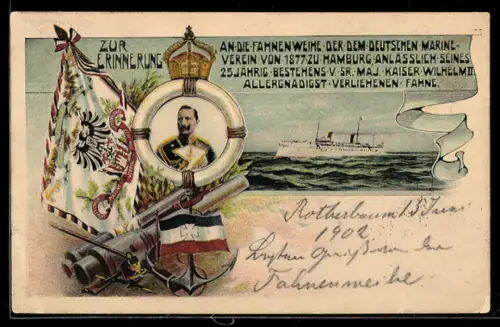 ZUR
ERINNERUNG
AN·DIE·FAHNENWEIHE·DER·DEM·DEUTSCHEN·MARINE-
VEREIN·VON·1877·ZU·HAMBURG, ANLÄSSLICH·SEINES
25JÄHRIG·BESTEHENS·V·SR·MAJ·KAISER·WILHELM II
ALLERGNÄDIGST·VERLIEHENEN·FAHNE.
Rotherbaum 13 Juni
1902
von der
Fahnenweihe